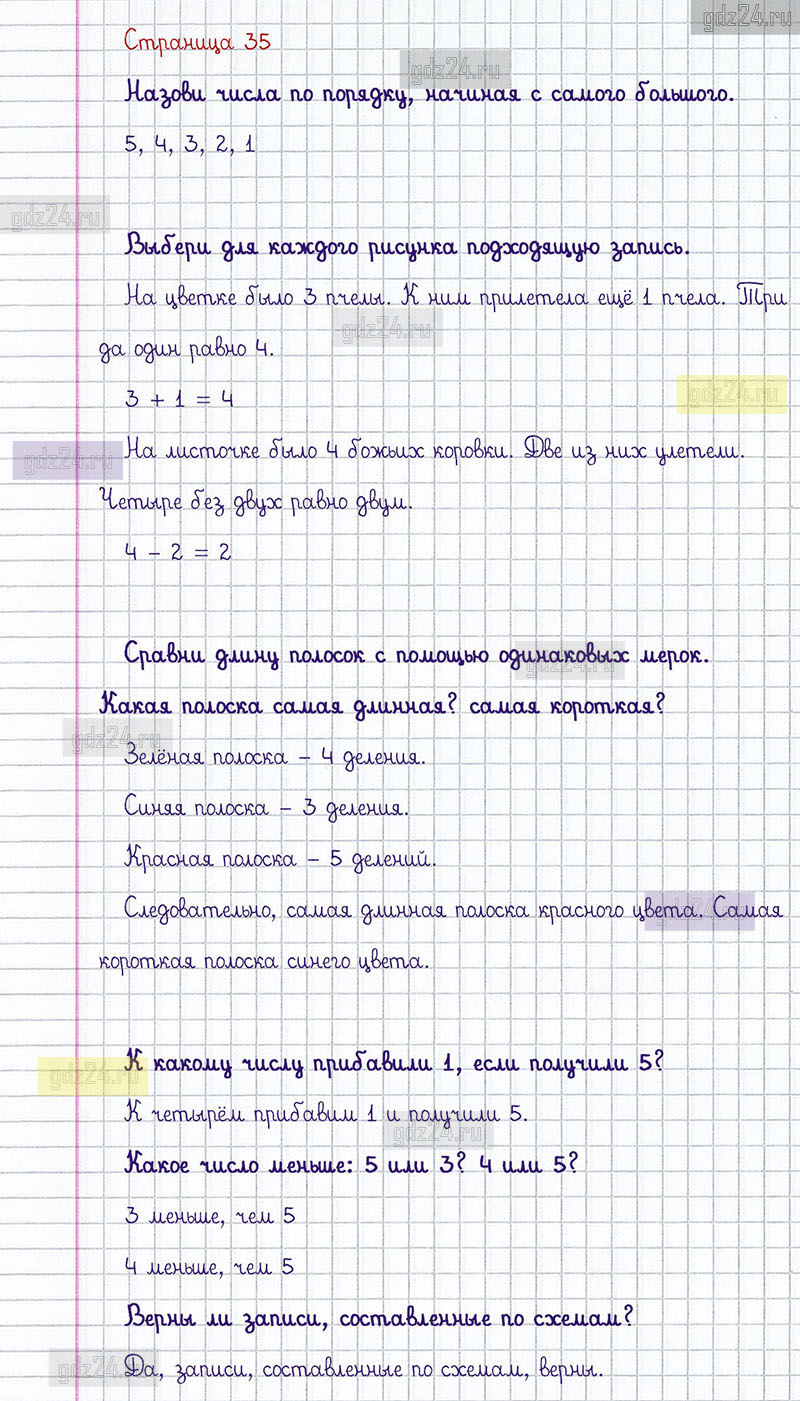 gdz24.ru
Страница 35
gdz24.ru
Назови числа по порядку, начиная с самого большого.
5, 4, 3, 2, 1
gdz24.ru
Выбери для каждого рисунка подходящую запись.
На цветке было 3 пчелы. К ним прилетела ещё 1 пчела. Три
gdz24.ru
да один равно 4.
gdz24.ru
3 + 1 = 4
На листочке было 4 божьих коровки. Две из них улетели.
gdz24.ru
Четыре без двух равно двум.
4 – 2 = 2
Сравни длину полосок с помощью одинаковых мерок.
gdz24.ru
Какая полоска самая длинная? самая короткая?
gdz24.ru
Зелёная полоска – 4 деления.
Синяя полоска – 3 деления.
Красная полоска – 5 делений.
Следовательно, самая длинная полоска красного цвета. Самая
gdz24.ru
короткая полоска синего цвета.
К какому числу прибавили 1, если получили 5?
gdz24.ru
К четырём прибавим 1 и получили 5.
gdz24.ru
Какое число меньше: 5 или 3? 4 или 5?
3 меньше, чем 5
4 меньше, чем 5
Верны ли записи, составленные по схемам?
gdz24.ru
Да, записи, составленные по схемам, верны.